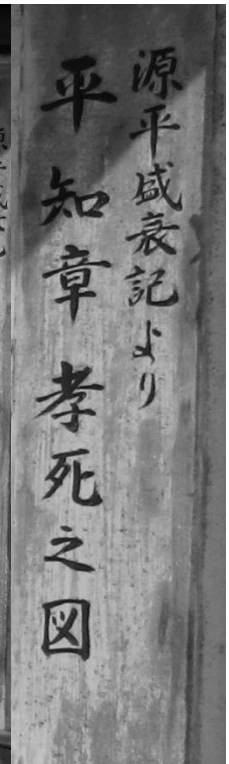 源平盛衰記より
平知章孝死之図